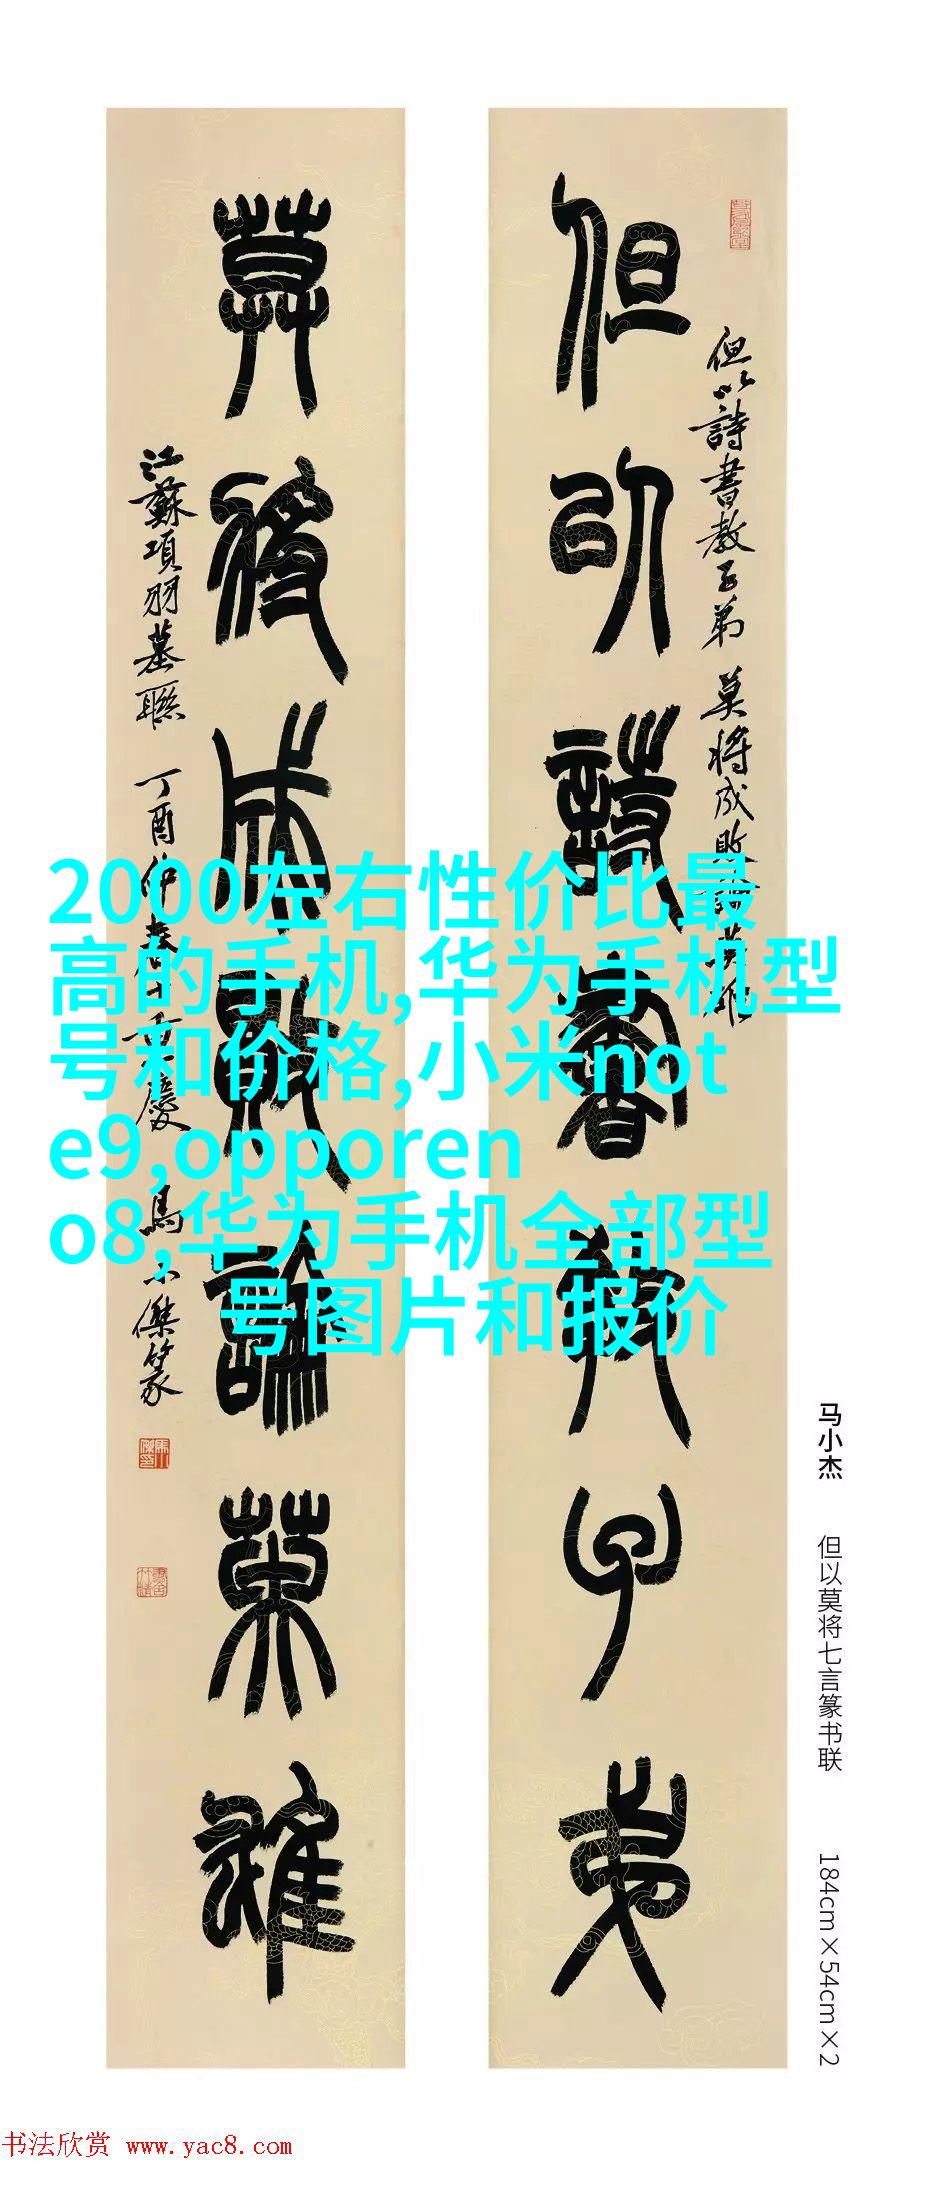 但以詩書教子弟
但以詩書教子弟 莫將成敗論英雄
莫將成敗論英雄
江蘇項羽墓聯 丁酉仲春於重慶 馬小傑篆
2000左右性价比最
高的手机,华为手机型
号和价格,小米not
e9,opporen
o8,华为手机全部型
号图片和报价
马小杰 但以莫将七言篆书联 184cm×54cm×2
书法欣赏 www.yac8.com